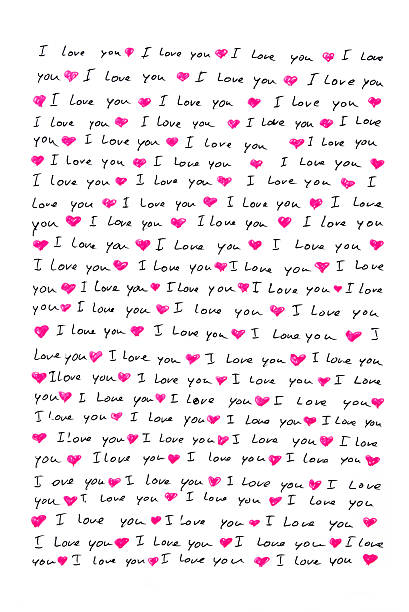 I love you I love you I love you I love
you I love you I love you I love you
I love you I love you I love you
I love you I love you I love you I love
you I love you I love you I love you
I love you I love you I love you
I love you I love you I love you I
love you I love you I love you I love
you I love you I love you I love you
I love you I love you I love you
I love you I love you I love you I love
you I love you I love you I love you I love
you I love you I love you I love you
I love you I love you I love you I
love you I love you I love you I love you
I love you I love you I love you I love
you I love you I love you I love you
I love you I love you I love you I love you
I love you I love you I love you I love
you I love you I love you I love you
I ove you I love you I love you I love
you I love you I love you I love you
I love you I love you I love you
I love you I love you I love you I love
you I love you I love you I love you